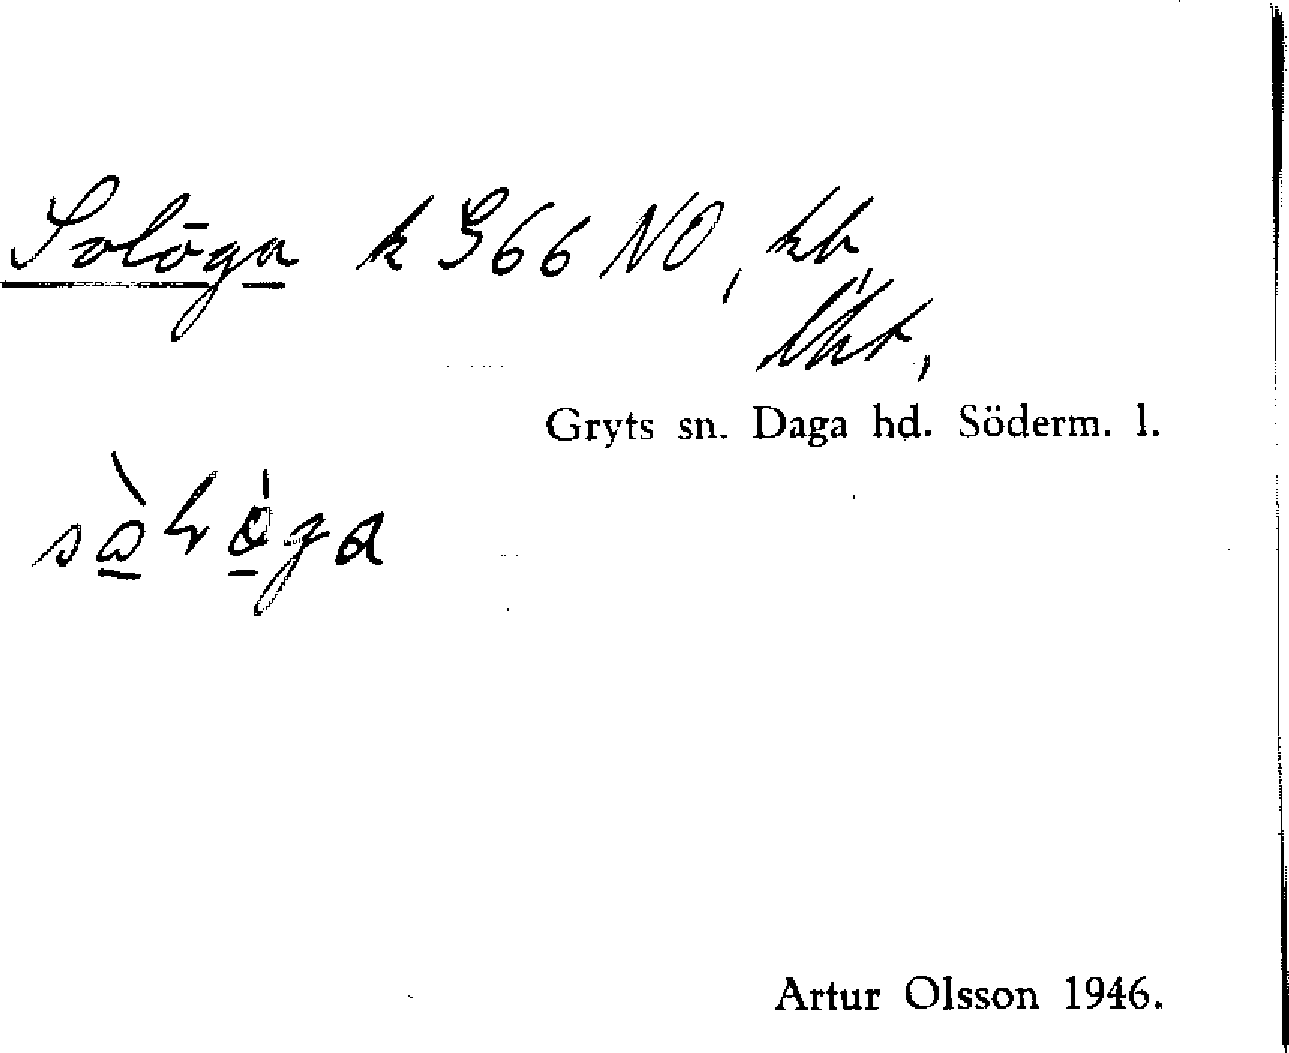 Solöga k 366 NO, kb,
lht,
Gryts sn. Daga hd. Söderm. l.
Artur Olsson 1946.